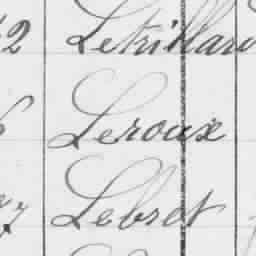 2 Letrillard
Leroux
7 Lebret